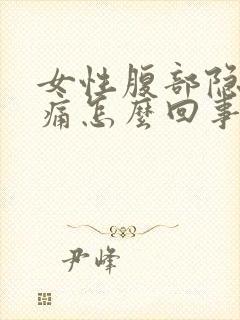 女性腹部隐
痛怎麼回事
尹峰